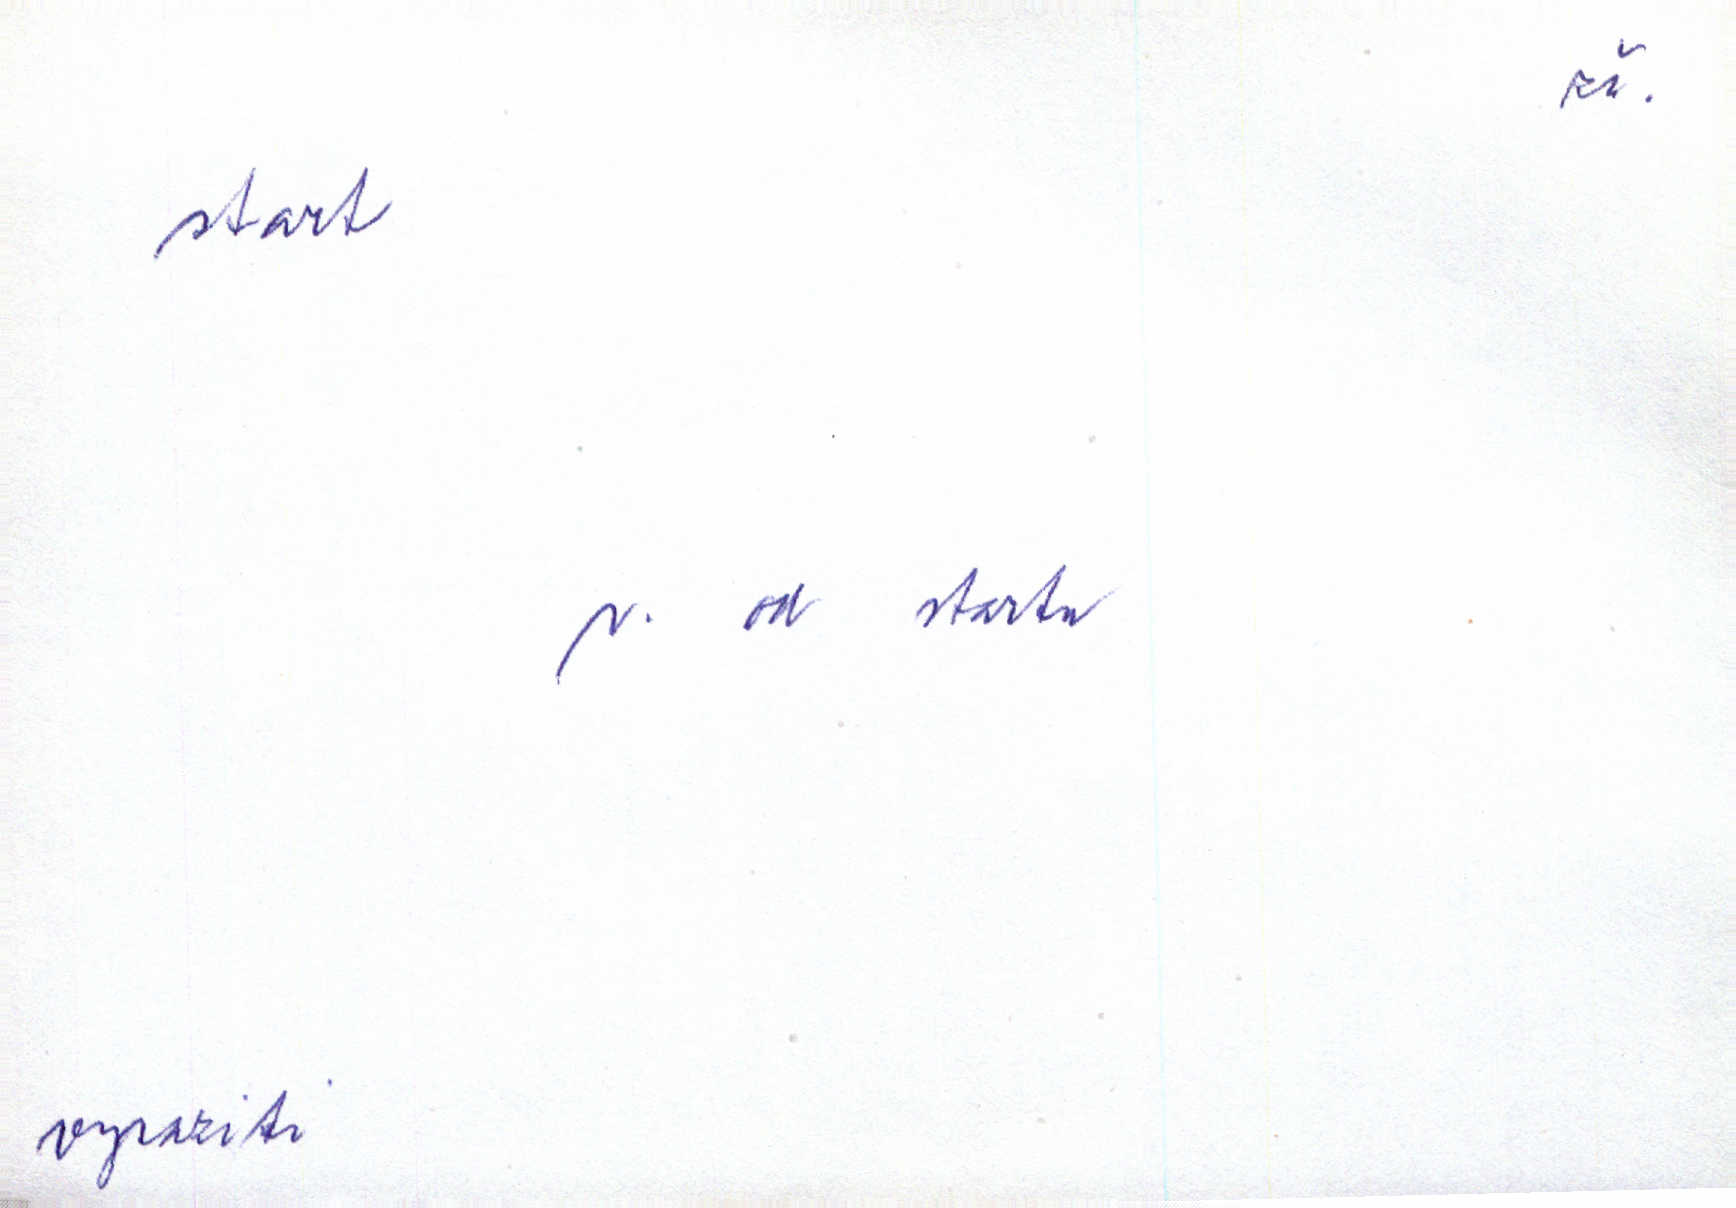 rů.
start
v. od startu
vyraziti